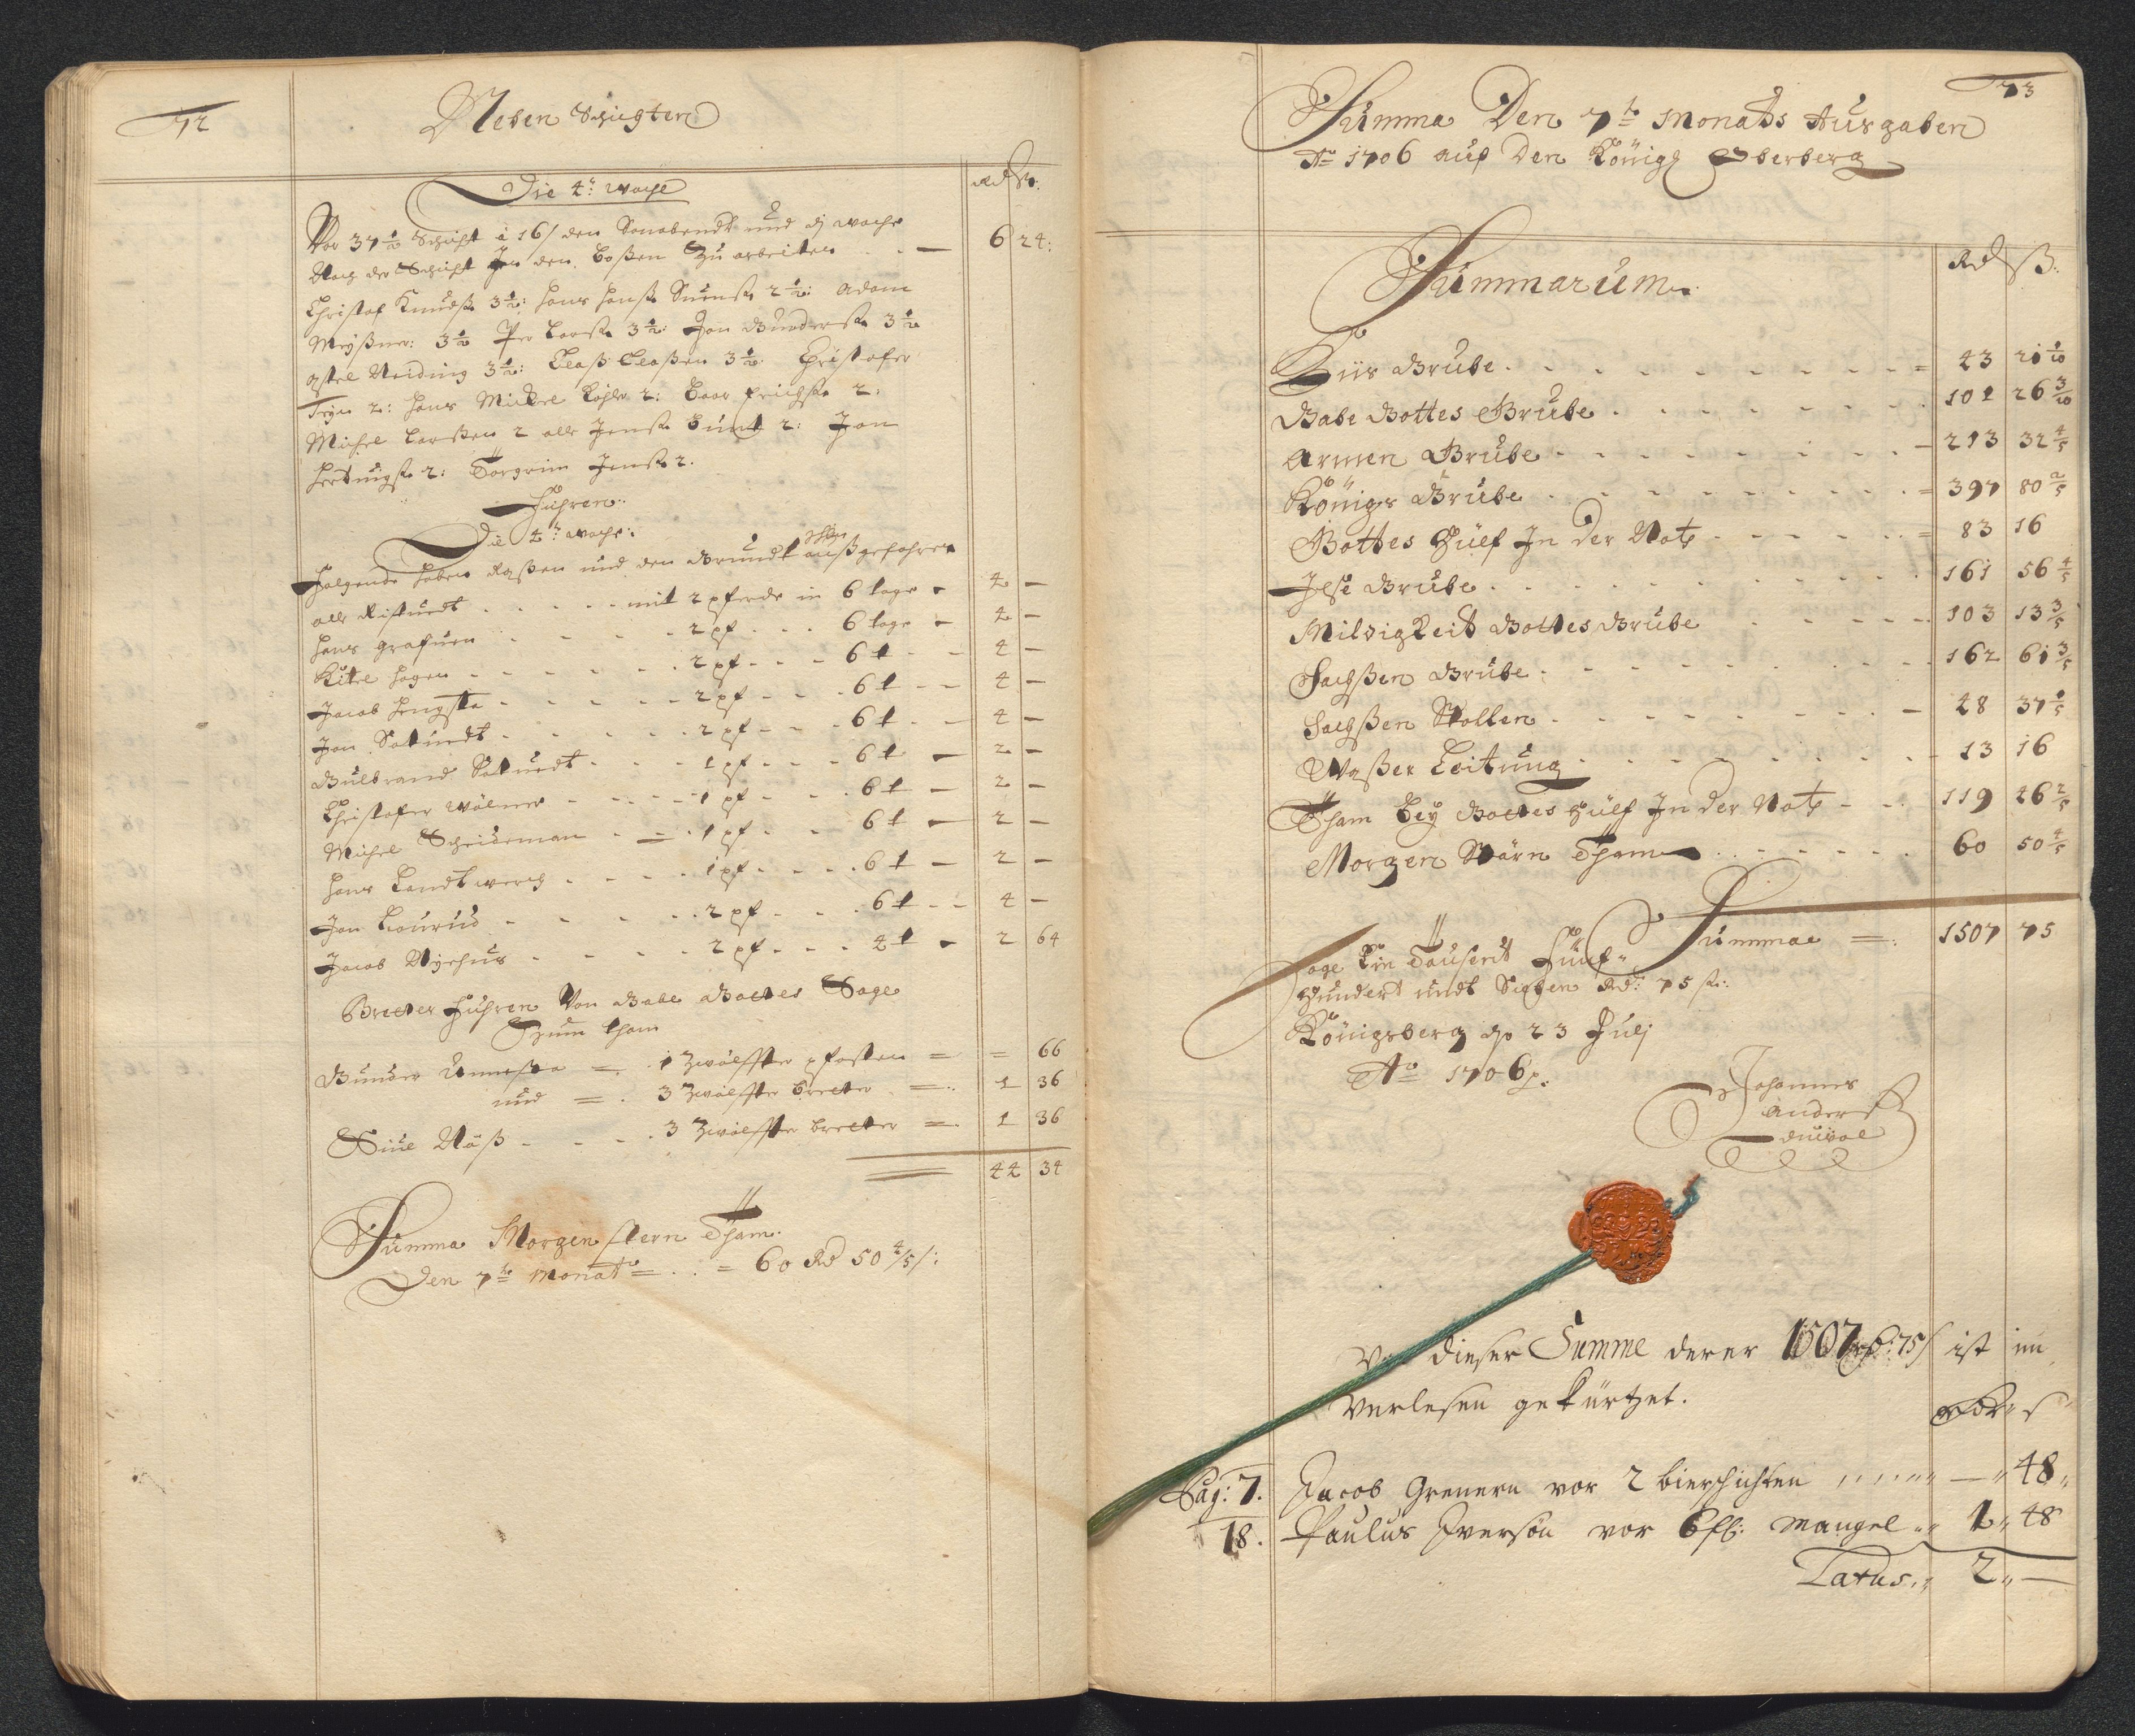 72
Neben Schigten
Die 4te Woche
Rd ß:
Vor 37 1/2 Schicht à 16 / den Sonabendt und dj woche
Nach der Schicht den Boßen Zu arbeiten . . — 6 24:
Christof Knudß 3 1/2: Hans Hanß 2 1/2: Adam
Meyßner: 3 1/2 Per Larß 3 1/2: Jon Gundersß 3 1/2
Neiding 3 1/2: Claß Claßen 3 1/2: Christofer
2: Hans Mickel Kohlr 2: Erichß 2:
Michel Larßen 2 olle Jenß 2: Jon
Hertuigß 2: Torgrim Jenß 2.
Fuhren:
Die 4te Woche:
Folgende haben und den Grundt außgefahren
olle . . . . . mit 2 pferde in 6 tage - 4 —
Hans . . . . 2 pf . . . 6 tage - 4 —
Kittel Hagen . . . . . 2 pf - - - 6 t - - 4 —
Jacob . . . . . 2 pf - - . 6 t - - 4 —
Jon . . . . . 2 pf - - - 6 t . - 4 —
Gulbrand . . . 1 pf - - - 6 t — 2 —
Christofer Wölner - - - - 1 pf - - . 6 t — 2 —
Michel Scheideman - — . 1 pf . - 6 t — 2 —
Hans Landtwerch . . . . 1 pf - - . . 6 t — 2 —
Jon . . . . . . 2 pf - . . 6 t - - 4 —
Jacob Nyehus . . . . 2 pf - - . 4 t - 2 64
Bretter Fuhren Von Gabe Gottes Sage
Zum tham
Gunder = . 1 Zwölffte pfosten = = 66
und = . 3 Zwölffte bretter = 1 36
Näß - - - . 3 Zwölffte bretter = 1 36
44 34
Summa Morgen stern Tham.
Den 7te Monat = . . = 60 Rd 50 4/5 /:
73
Summa Den 7te Monats Ausgaben
Ao 1706 auf Den Königl Oberberg
Summarum.
Rd ß:
Grube . . . . . . = 43 21 1/10
Gabe Gottes Grube . . . . . . 101 26 3/10
Armen Grube . . . . . . — 213 32 4/5
Königs Grube . . . . . . = 397 80 2/5
Gottes Hülf In der Noth . . . . . = 83 16
Jlse Grube . . . . . . 161 56 4/5
Mildigkeit Gottes Grube . . . . 103 13 3/5
Sachßen Grube . . . . . . 162 61 3/5
Sachßen Stollen . . . . . . — 28 37 1/5
Waßer Leitung . . . . . . 13 16
Tham bey Gottes Hülf In der Noth - - . 119 26 2/5
Morgen Stärn Tham . . . . . . 60 50 4/5
Summae =: 1507 75
Sage Ein Tausent Fünf-
Hundert undt Sieben Rd: 75 ß:
Königsberg dn 23 Julj
Ao 1706.
Johannes
Anders
duual
Von dieser Summe derer 1507 rd: 75 / ist im
Verlesen gekürtzet.
Pag: 7. Jacob Grenern vor 2 bierschichten — " 48 "
18. Paulus Jversön vor 6 ß: mangel " 1 " 48
Latus " 2 " —